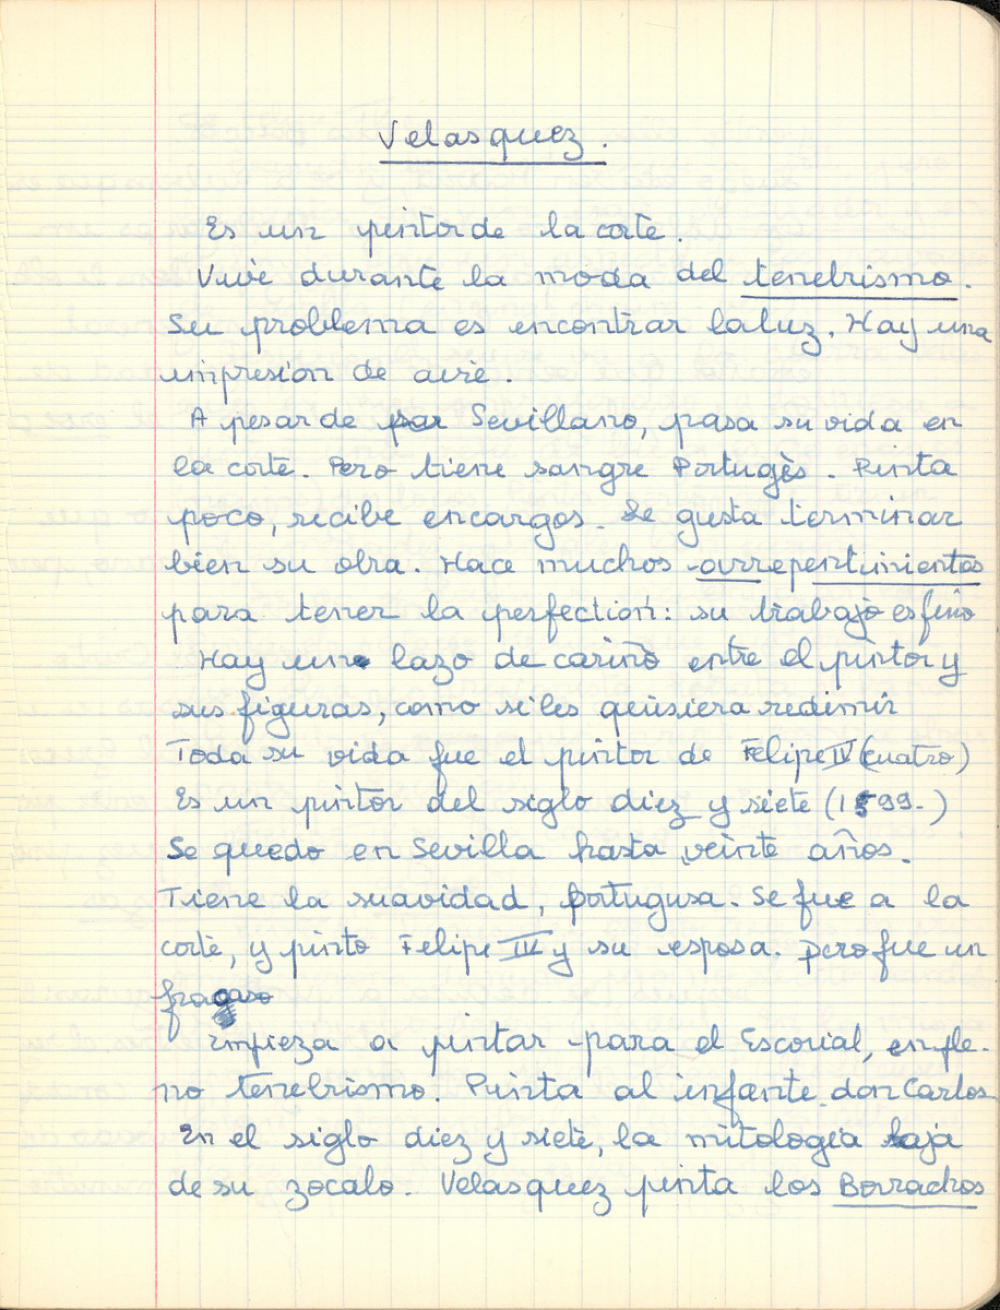 Velasquez.
Es un pintor de la corte.
Vive durante la moda del tenebrismo.
Su problema es encontrar la luz. Hay una
impresion de aire.
A pesar de ser Sevillano, pasa su vida en
la corte. Pero tiene sangre Portugès. Pinta
poco, recibe encargos. Le gusta terminar
bien su obra. Hace muchos arrepentimientos
para tener la perfection: su trabajo es fino
Hay un lazo de cariño entre el pintor y
sus figuras, como si les qeüsiera redimir
Toda su vida fue el pintor de Felipe IV (cuatro)
Es un pintor del siglo diez y siete (1599-)
Se quedo en Sevilla hasta veinte años.
Tiene la suavidad, portugusa. Se fue a la
corte, y pinto Felipe IV y su esposa. Pero fue un
fragaso
Empieza a pintar para el Escorial, en ple-
no tenebrismo. Pinta al infante don Carlos
En el siglo diez y siete, la mitologia baja
de su zocalo. Velasquez pinta los Borrachos